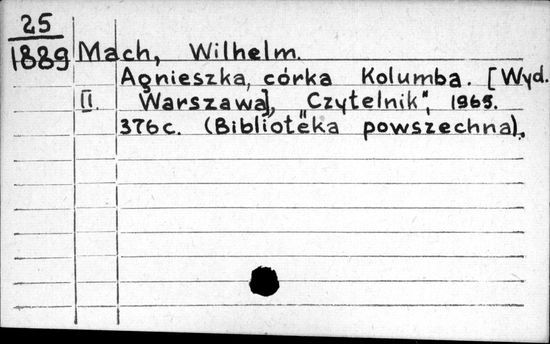 25
1889 Mach, Wilhelm.
Agnieszka, córka Kolumba. [Wyd.
II. Warszawa], „Czytelnik", 1965.
376c. (Biblioteka powszechna).